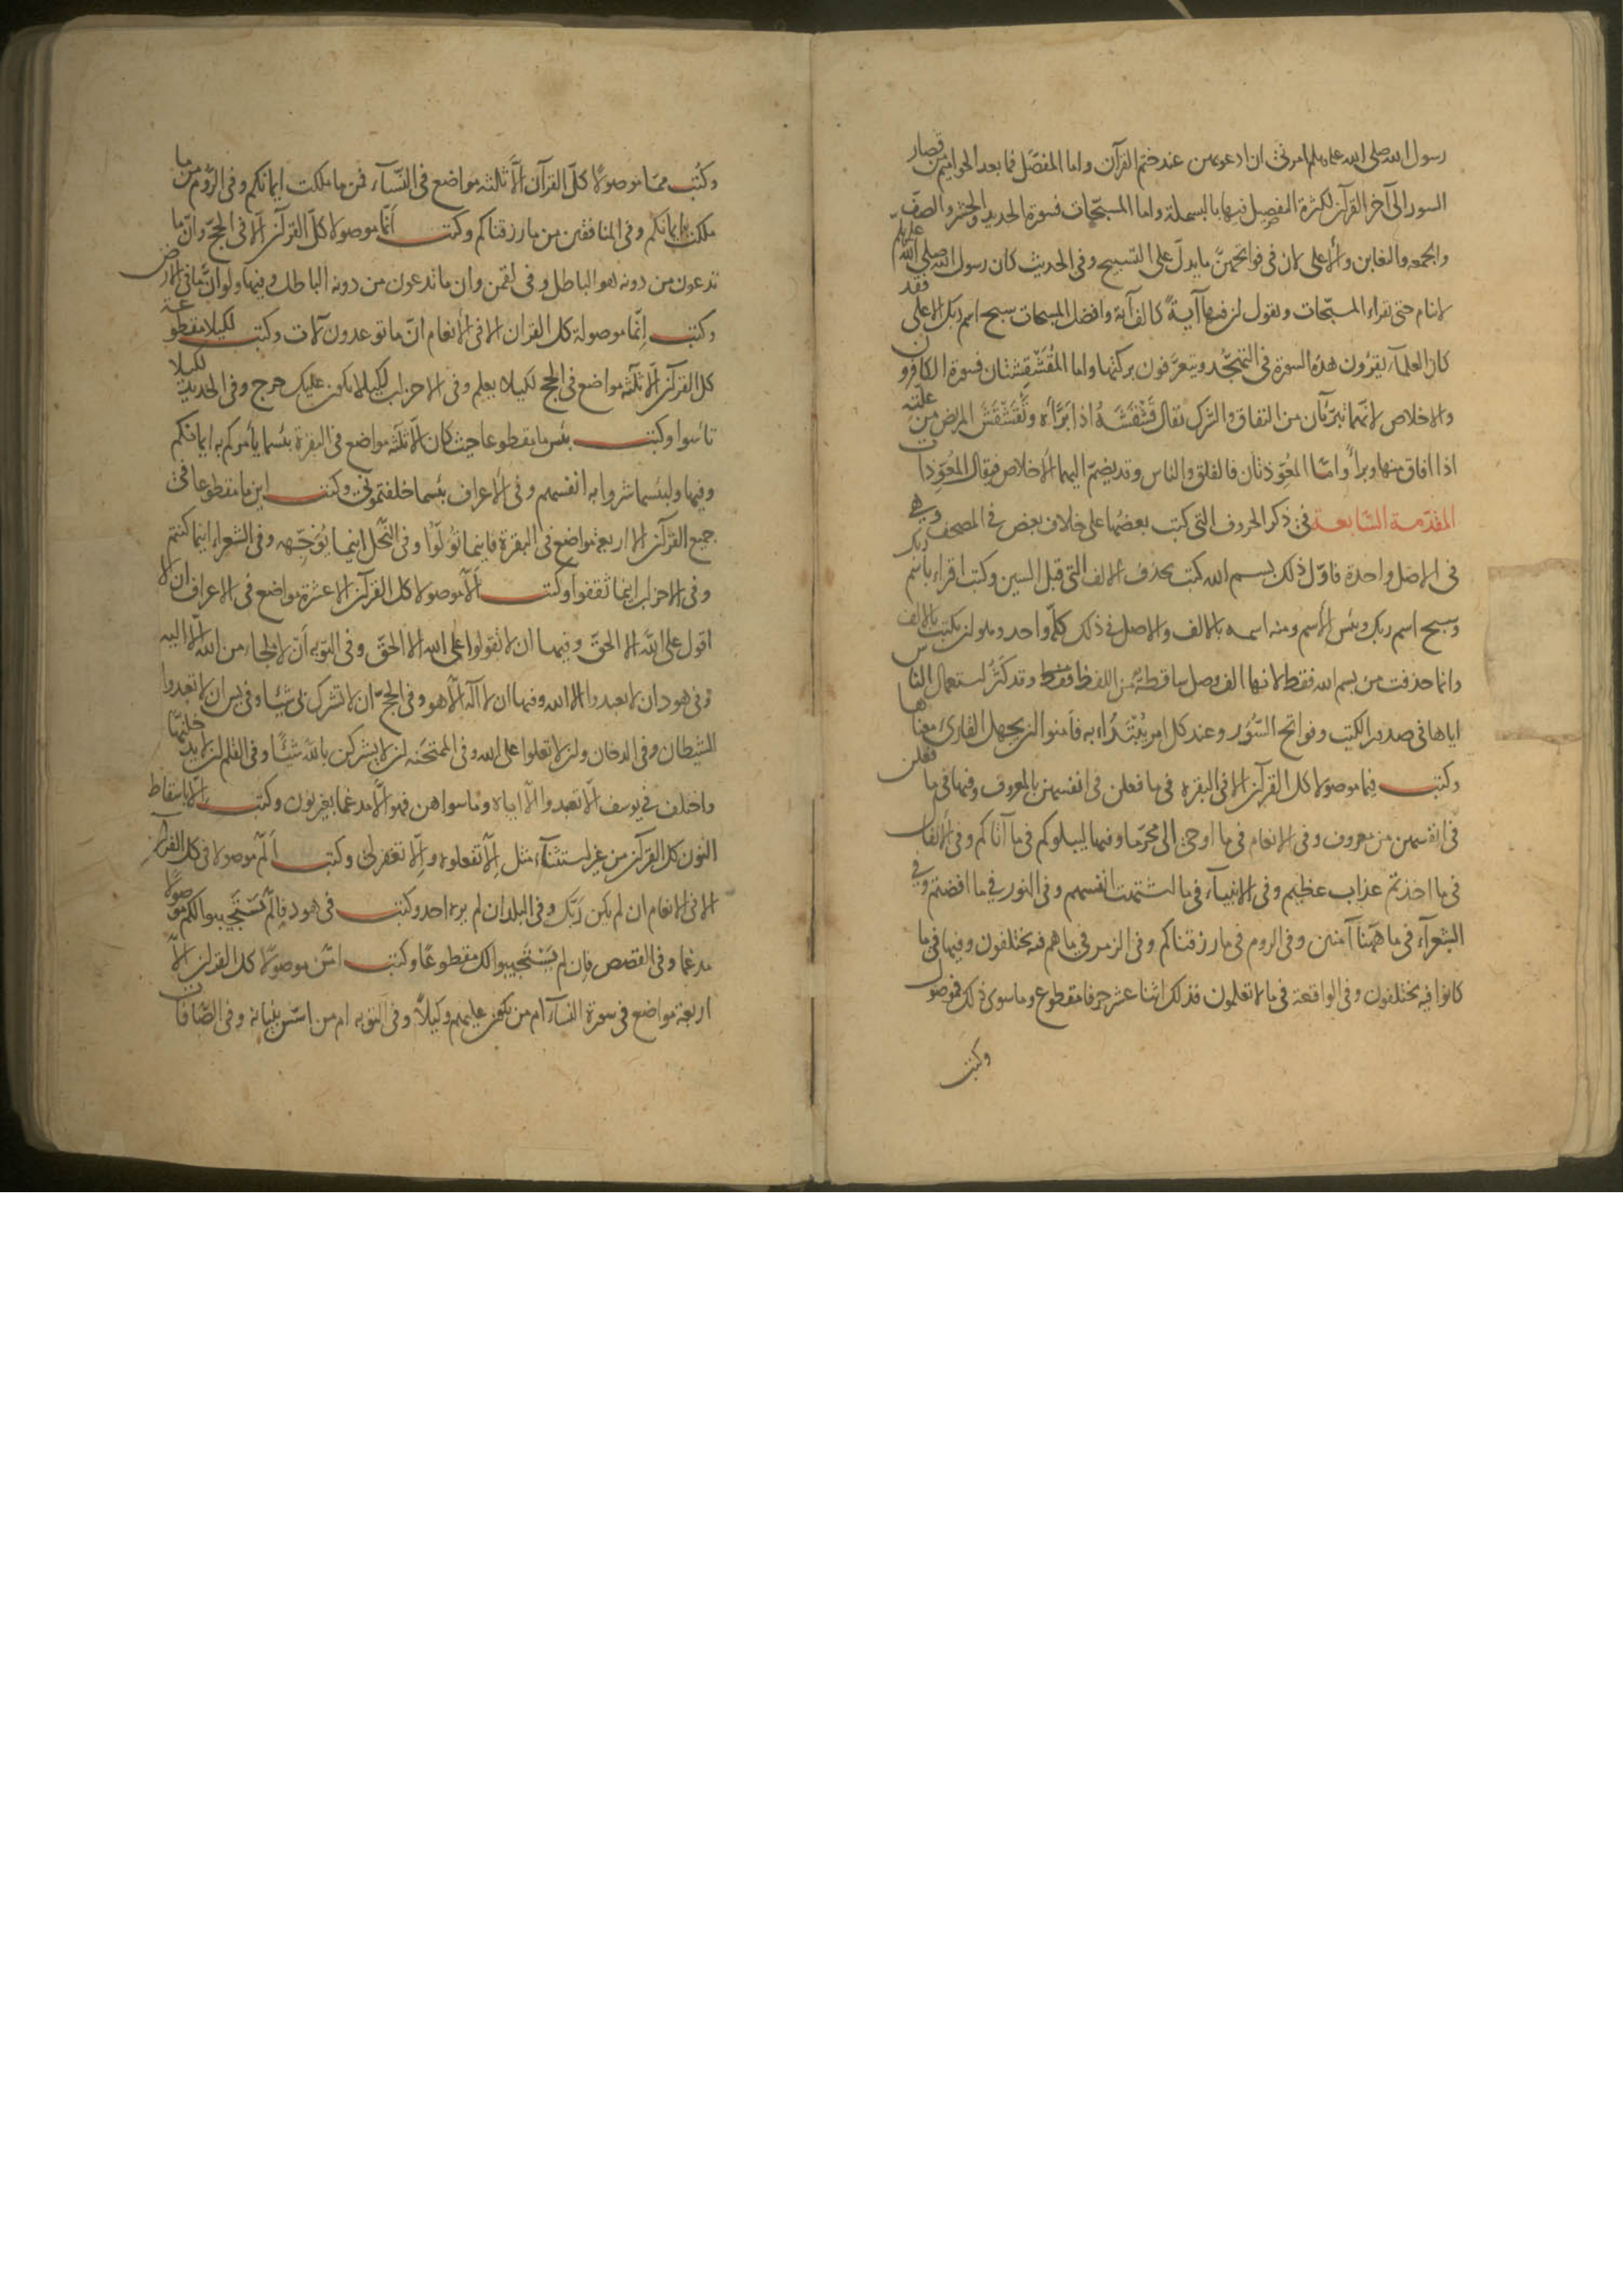 رسول الله صلى الله عليه وسلم امرنى ان ادعو بهن عند ختم القرآن واما المفصّل فما بعد الحواميم من قصار
السور الى آخر القرآن لكثرة الفصل فيها بالبسملة واما المسبّحات فسورة الحديد والحشر والصف
والجمعه والتغابن والأعلى لان فى فواتحهنّ ما يدلّ على التسبيح وفى الحديث كان رسول الله صلى الله عليه وسلم
لا ينام حتى يقراء المسبّحات ويقول ان فيها آيةً كالف آية وافضل المسبحات سبح اسم ربك الاعلى فقد
كان العلمآء يقرؤن هذه السورة فى التهجّد ويتعرّفون بركتها واما المُقَشْقِشَتان فسورة الكافرون
والاخلاص لانهما تبرّئآن من النفاق والشرك يقال قَشْقَشَهُ اذا ابَرَّأه وتَقَشْقَشَ المريض من علّته
اذا افاق منها وبرأ وامّا المُعَوِّذتان فالفلق والناس وقد يضمّ اليهما الأخلاص فيقال المُعوّذات
المقدّمة السّابعة فى ذكر الحروف التى كتب بعضها على خلاف بعض فى المصحف وهى
فى الاصل واحدة فاوّل ذلك بسم الله كتب بحذف الالف التى قبل السين وكتب اقراء باسم ربك
وسبح اسم ربك وبئس الأسم ومنه اسمه بالالف والاصل فى ذلك كلّه واحد وهو ان يكتب بالالف
وانما حذفت من بسم الله فقط لانها الف وصل ساقطة من اللفظ فقط وقد كَثُر استعمال الناس
اياها فى صدور الكتب وفواتح السُّوَر وعند كل امر يُبْتَدُاء به فأمنوا ان يجهل القارئ معناها
وكتب فيما موصولا كل القرآن الا فى البقرة فى ما فعلن فى انفسهن بالمعروف وفيها فى ما فعلن
فى انفسهن من معروف وفى الانعام فى ما اوحى الى محرّما وفيها ليبلوكم فى ما آتاكم وفى الأنفال
فى ما اخذتم عذاب عظيم وفى الانبيآء فى ما اشتهت انفسهم وفى النور فى ما افضتم وفى
الشعرآء فى ما هَهُنا آمنين وفى الروم فى ما رزقناكم وفى الزمر فى ما هم فيه يختلفون وفيها فى ما
كانوا فيه يختلفون وفى الواقعة فى ما لا تعلمون فذلك اثنا عشر حرفا مقطوع وما سوى ذلك فموصول
وكتب
وكُتب ممّا موصولًا كلّ القرآن الّا ثلثة مواضع فى النّسآء فمن ما ملكت ايمانكم وفى الرّوم من ما
ملكت ايمانكم وفى المنافقين من ما رزقناكم وكتب أنّما موصولا كلّ القرآن الّا فى الحجّ وانّ ما
تدعون من دونه هو الباطل وفى لقمن وان ما تدعون من دونه الباطل وفيها ولو انّ ما فى الارض
وكتب إنّما موصولة كل القران الا فى الأنعام انّ ما توعدون لآت وكتب لكيلا مقطوعة
كل القرآن الّا ثلثة مواضع فى الحج لكيلا يعلم وفى الاحزاب لكيلا يكون عليك حرج وفى الحديد لكيلا
تأسوا وكتب بئس ما مقطوعا حيث كان الّا ثلثة مواضع فى البقرة بئسما يأمركم به ايمانكم
وفيها ولبئسما شروا به انفسهم وفى الأعراف بئسما خلفتمونى وكتب اين ما مقطوعا فى
جميع القرآن الا اربعة مواضع فى البقرة فاينما تُوَلّوا وفى النّحل اينما يُوَجّهه وفى الشعراء اينما كنتم
وفى الاحزاب اينما ثقفوا وكتب ألّا موصولا كل القرآن الا عشرة مواضع فى الاعراف ان لا
اقول على الله الا الحقّ وفيها ان لا تقولوا على الله الا الحقّ وفى التوبه أن لا ملجاء من الله الّا اليه
وفى هود ان لا تعبدوا الا الله وفيها ان لا آله الّا هو وفى الحجّ ان لا تشرك بى شيئا وفى يس ان لا تعبدوا
الشيطان وفى الدخان وان لا تعلوا على الله وفى الممتحنه ان لا يشركن بالله شيئًا وفى القلم ان لا يدخلنّها
واختلف فى يوسف الّا تعبدوا الّا اياه وما سواهن فهو الّا مدغما بغير نون وكتب إلّا باسقاط
النون كل القرآن من غير استثنآء مثل إلّا تفعلوه وإلّا تغفر لى وكتب ألّم موصولا فى كل القرآن
الا فى الانعام ان لم يكن رَبّك وفى البلد ان لم يره احد وكتب فى هود فإلّم يَسْتَجيبوا لكم موصولًا
مدغما وفى القصص فإن لم يَسْتَجيبوا لك مقطوعًا وكتب امّن موصولًا كل القرآن الّا
اربعة مواضع فى سورة النسآء ام من يكون عليهم وكيلاً وفى التوبه ام من اسّس بنيانه وفى الصّافّات